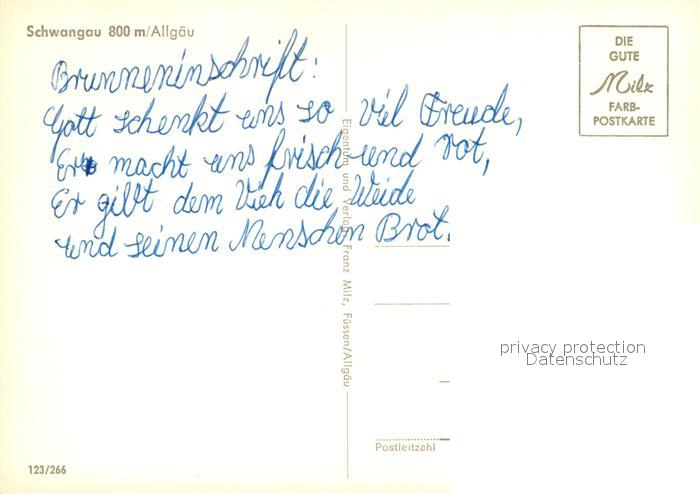 Schwangau 800 m/Allgäu
DIE
GUTE
Milz
FARB-
POSTKARTE
Brunneninschrift:
Gott schenkt uns so viel Freude,
Er macht uns frisch und rot,
Er gibt dem Vieh die Weide
und seinen Menschen Brot.
Eigentum und Verlag Franz Milz, Füssen/Allgäu
privacy protection
Datenschutz
Postleitzahl
123/266